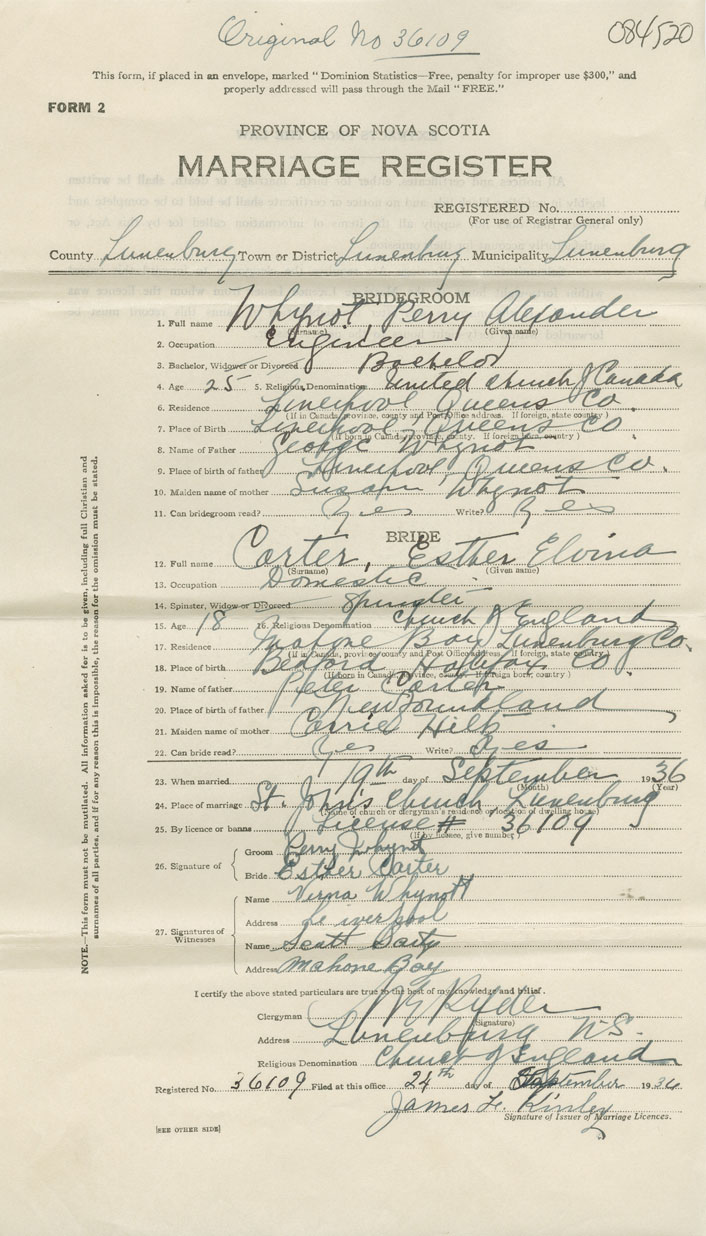 Original No 36109
084520
This form, if placed in an envelope, marked "Dominion Statistics—Free, penalty for improper use $300," and
properly addressed will pass through the Mail "FREE."
FORM 2
PROVINCE OF NOVA SCOTIA
MARRIAGE REGISTER
REGISTERED No.
(For use of Registrar General only)
County Lunenburg Town or District Lunenburg Municipality Lunenburg
BRIDEGROOM
1. Full name Whynot, Perry Alexander
(Surname) (Given name)
2. Occupation Engineer
3. Bachelor, Widower or Divorced Bachelor
4. Age 25 5. Religious Denomination United Church of Canada
6. Residence Liverpool Queens Co.
(If in Canada, province, county and Post Office address. If foreign, state country)
7. Place of Birth Liverpool Queens Co.
(If born in Canada, province, county. If foreign born, country)
8. Name of Father George Whynot
9. Place of birth of father Liverpool Queens Co.
10. Maiden name of mother Susan Whynot
11. Can bridegroom read? Yes Write? Yes
BRIDE
12. Full name Carter, Esther Elvina
(Surname) (Given name)
13. Occupation Domestic
14. Spinster, Widow or Divorced Spinster
15. Age 18 16. Religious Denomination Church of England
17. Residence Mahone Bay Lunenburg Co.
(If in Canada, province, county and Post Office address. If foreign, state country)
18. Place of birth Bedford Halifax Co.
(If born in Canada, province, county. If foreign born, country)
19. Name of father Peter Carter
20. Place of birth of father Newfoundland
21. Maiden name of mother Carrie Hiltz
22. Can bride read? Yes Write? Yes
23. When married 19th day of September 1936
(Month) (Year)
24. Place of marriage St. John's Church, Lunenburg
(Name of church or clergyman's residence or location of dwelling house)
25. By licence or banns License # 36109
(If by licence, give number)
26. Signature of
Groom Perry Whynot
Bride Esther Carter
27. Signatures of Witnesses
Name Verna Whynott
Address Liverpool
Name Scott
Address Mahone Bay
I certify the above stated particulars are true to the best of my knowledge and belief.
Clergyman Ryder
(Signature)
Address Lunenburg N.S.
Religious Denomination Church of England
Registered No. 36109 Filed at this office 24th day of September 1936
James Kinley
Signature of Issuer of Marriage Licences.
[SEE OTHER SIDE]
NOTE.—This form must not be mutilated. All information asked for is to be given, including full Christian and
surnames of all parties, and if for any reason this is impossible, the reason for the omission must be stated.